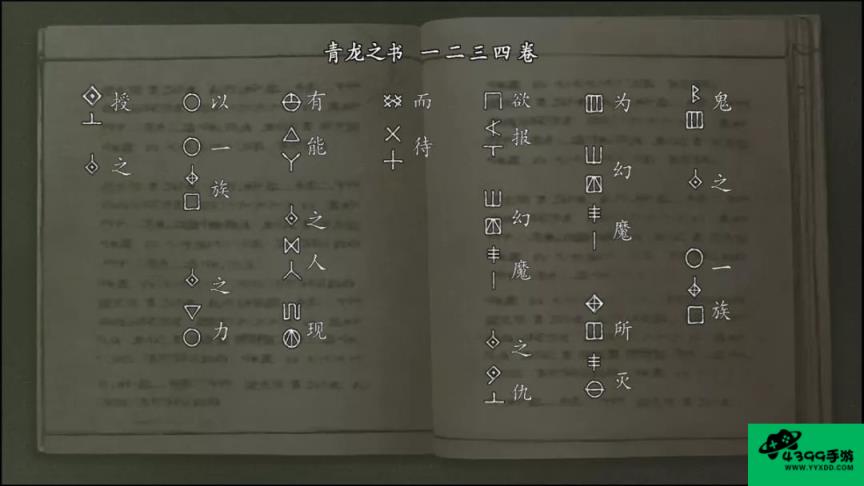 青龙之书 一二三四卷
鬼之一族
为幻魔所灭
欲报幻魔之仇
而待
有能之人现
以一族之力
授之
4399手游
WWW.YYXDD.COM